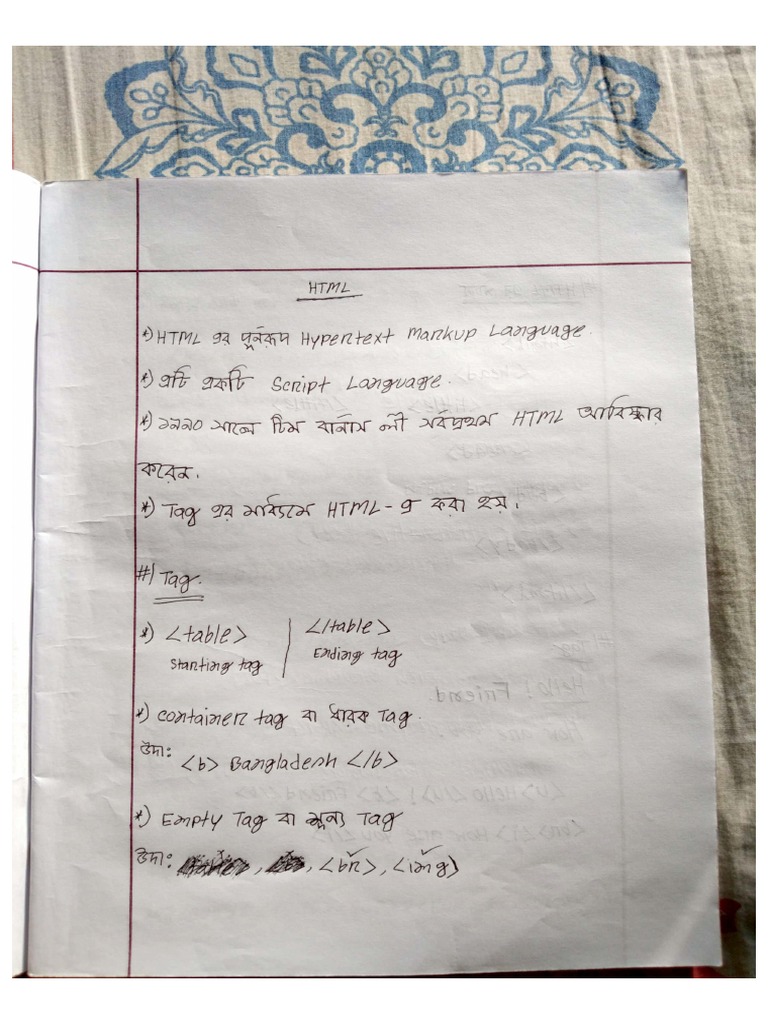 HTML
*) HTML এর পূর্নরূপ Hypertext Markup Language.
*) এটি একটি Script Language.
*) ১৯৯০ সালে টিম বার্নাস লী সর্বপ্রথম HTML আবিস্কার
করেন.
*) Tag এর মাধ্যমে HTML-এ করা হয়।
#) Tag.
*) <table> | </table>
Starting tag | Ending tag
*) Container tag বা ধারক Tag.
উদা: <b> Bangladesh </b>
*) Empty Tag বা শূন্য Tag
উদা: , , <br>, <img)